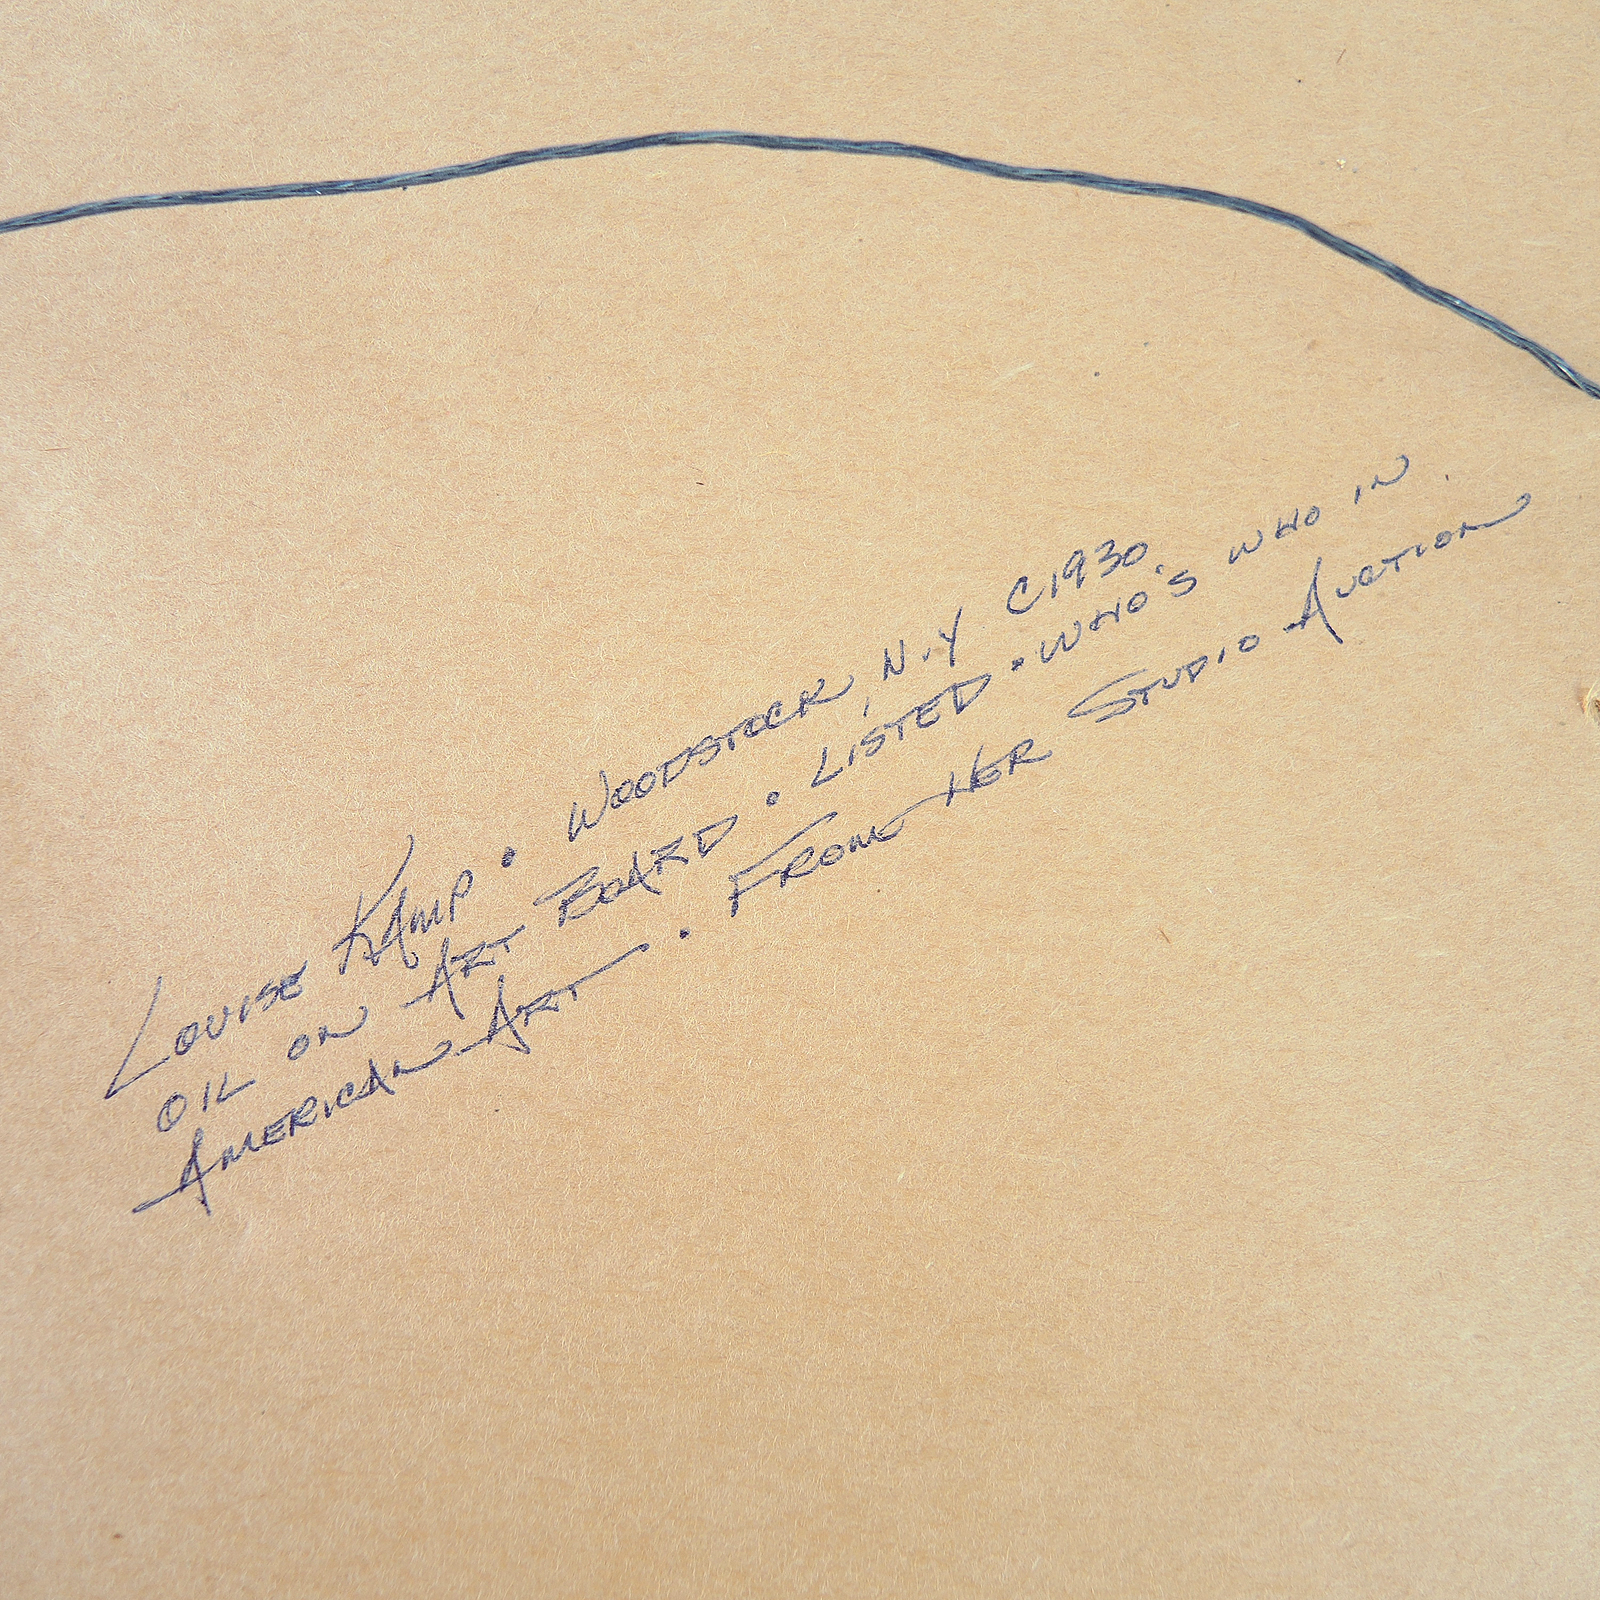 Louise Kamp • Woodstock, N.Y C1930
Oil on Art Board • Listed • Who's Who in
American Art • From Her Studio Auction